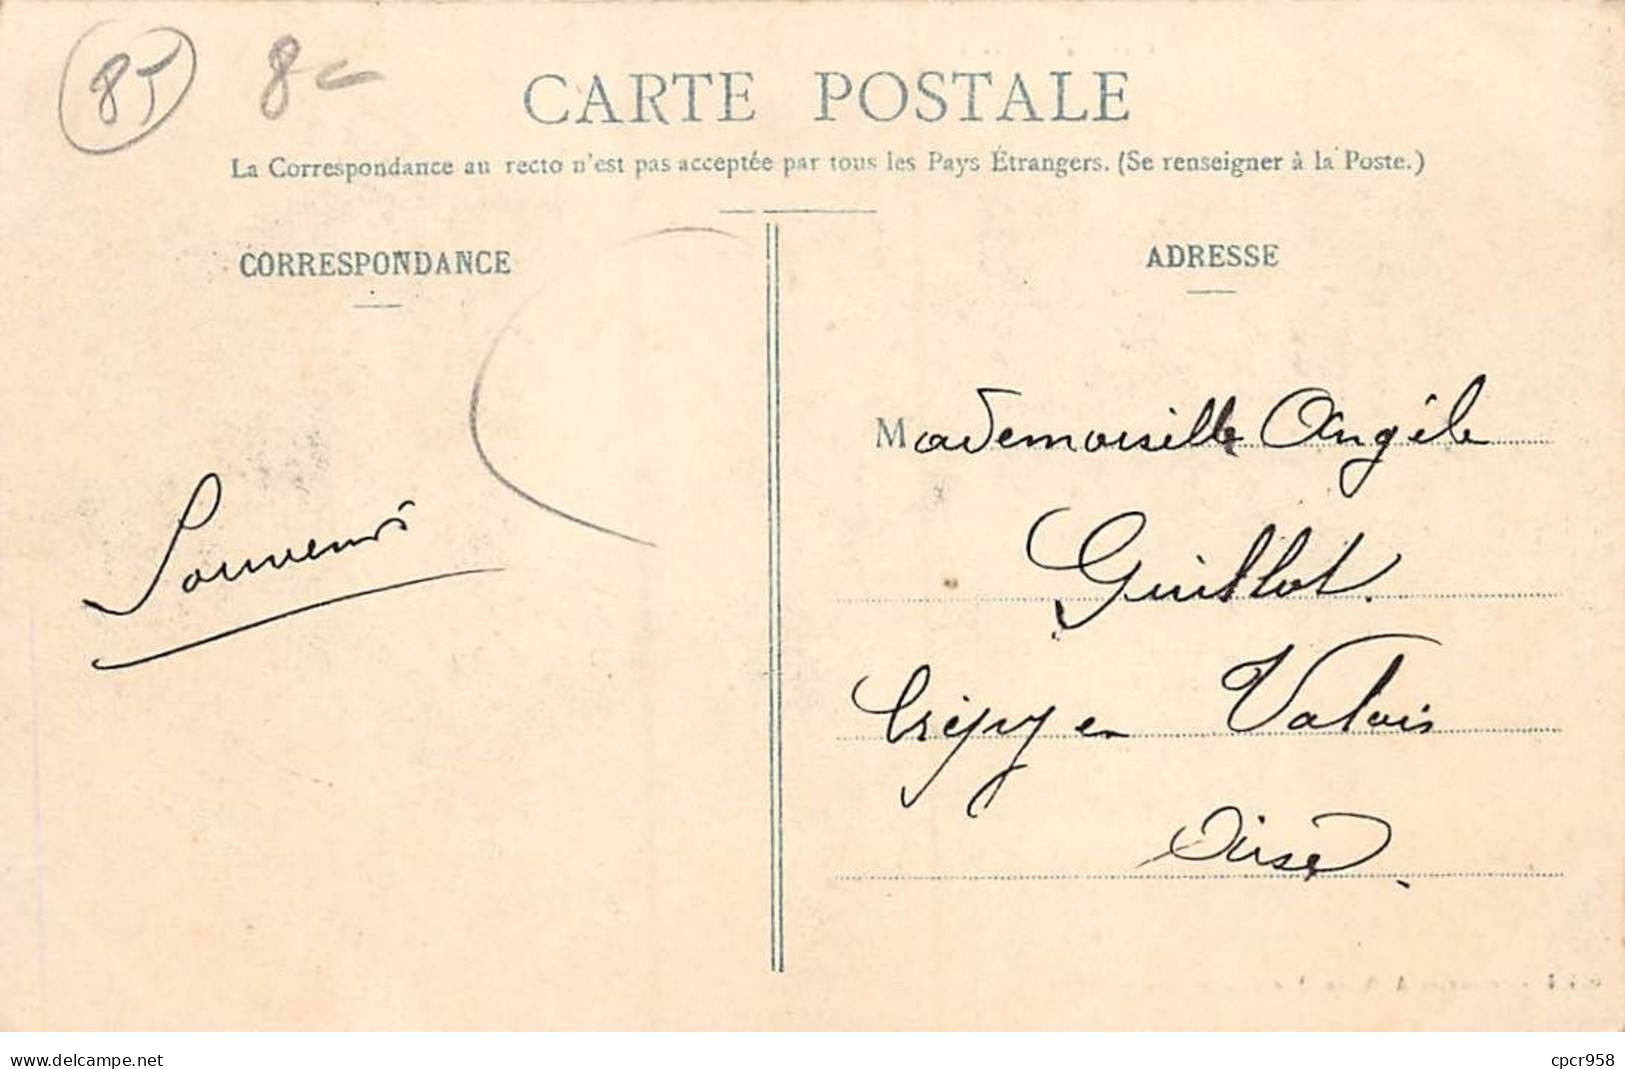 85 8
CARTE POSTALE
La Correspondance au recto n'est pas acceptée par tous les Pays Étrangers. (Se renseigner à la Poste.)
CORRESPONDANCE
Souvenir
ADRESSE
Mademoiselle Angèle
Guillot.
Crépy en Valois
Oise.
www.delcampe.net
cpcr958